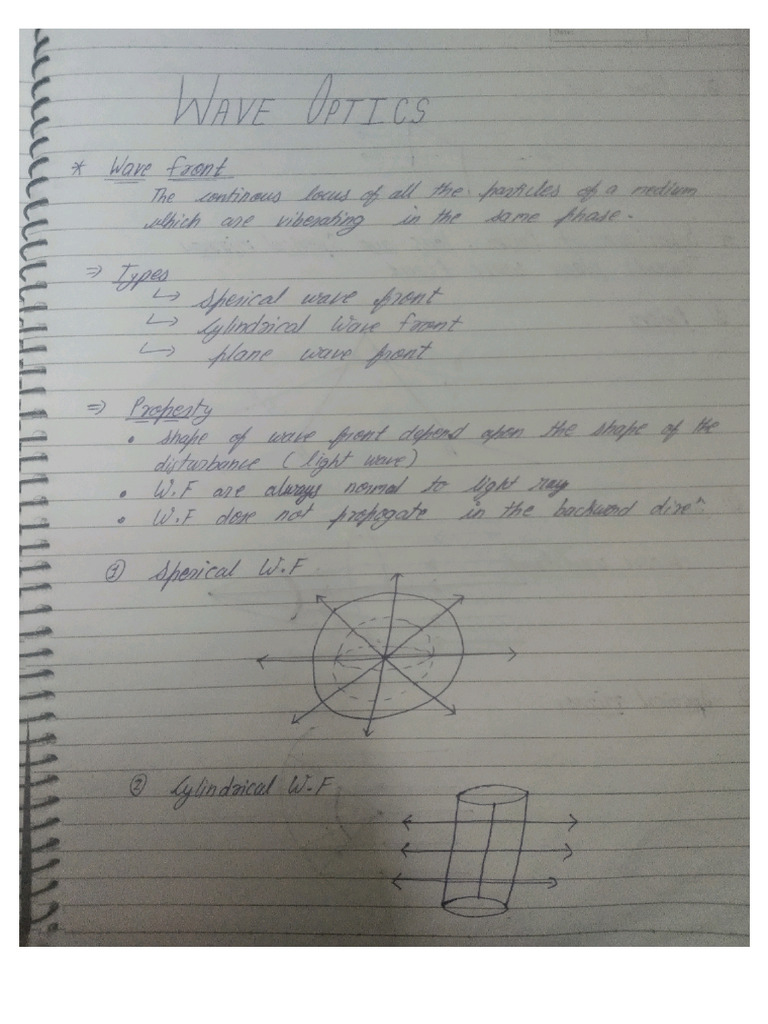 WAVE OPTICS
* Wave front
The continous locus of all the particles of a medium
which are viberating in the same phase.
⇒ Types
↳ Sperical wave front
↳ Cylindrical Wave front
↳ plane wave front
⇒ Property
• Shape of wave front depend upon the shape of the
disturbance (light wave)
• W.F are always normal to light ray
• W.F dose not propogate in the backword direⁿ.
① Sperical W.F
② Cylindrical W.F